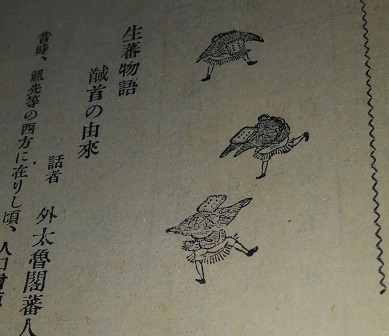 生蕃物語
馘首の由來
話者 外太魯閣蕃人
昔時、祖先等の西方に在りし頃、人口